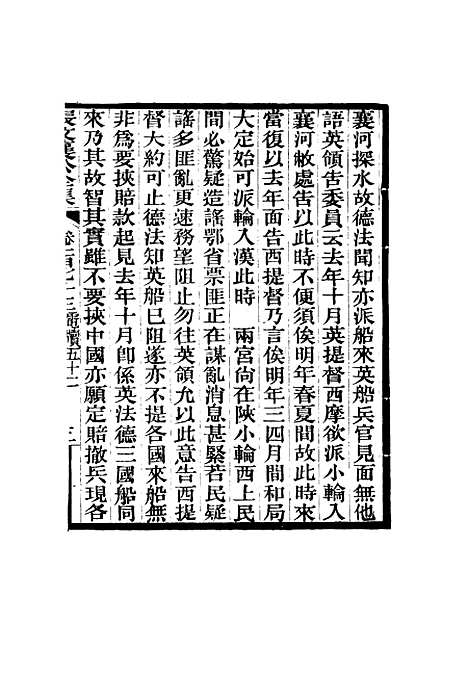 襄河探水故德法聞知亦派船來英船兵官見面無他
語英領吿委員云去年十月英提督西摩欲派小輪入
襄河敝處吿以此時不便須俟明年春夏間故此時來
當復以去年面吿西提督乃言俟明年三四月間和局
大定始可派輪入漢此時　兩宮尙在陝小輪西上民
間必驚疑造謠鄂省票匪正在謀亂消息甚緊若民疑
謠多匪亂更速務望阻止勿往英領允以此意吿西提
督大約可止德法知英船已阻遂亦不提各國來船無
非爲要挾賠款起見去年十月卽係英法德三國船同
來乃其故智其實雖不要挾中國亦願定賠撤兵現各
卷一百七十三電牘五十二　三